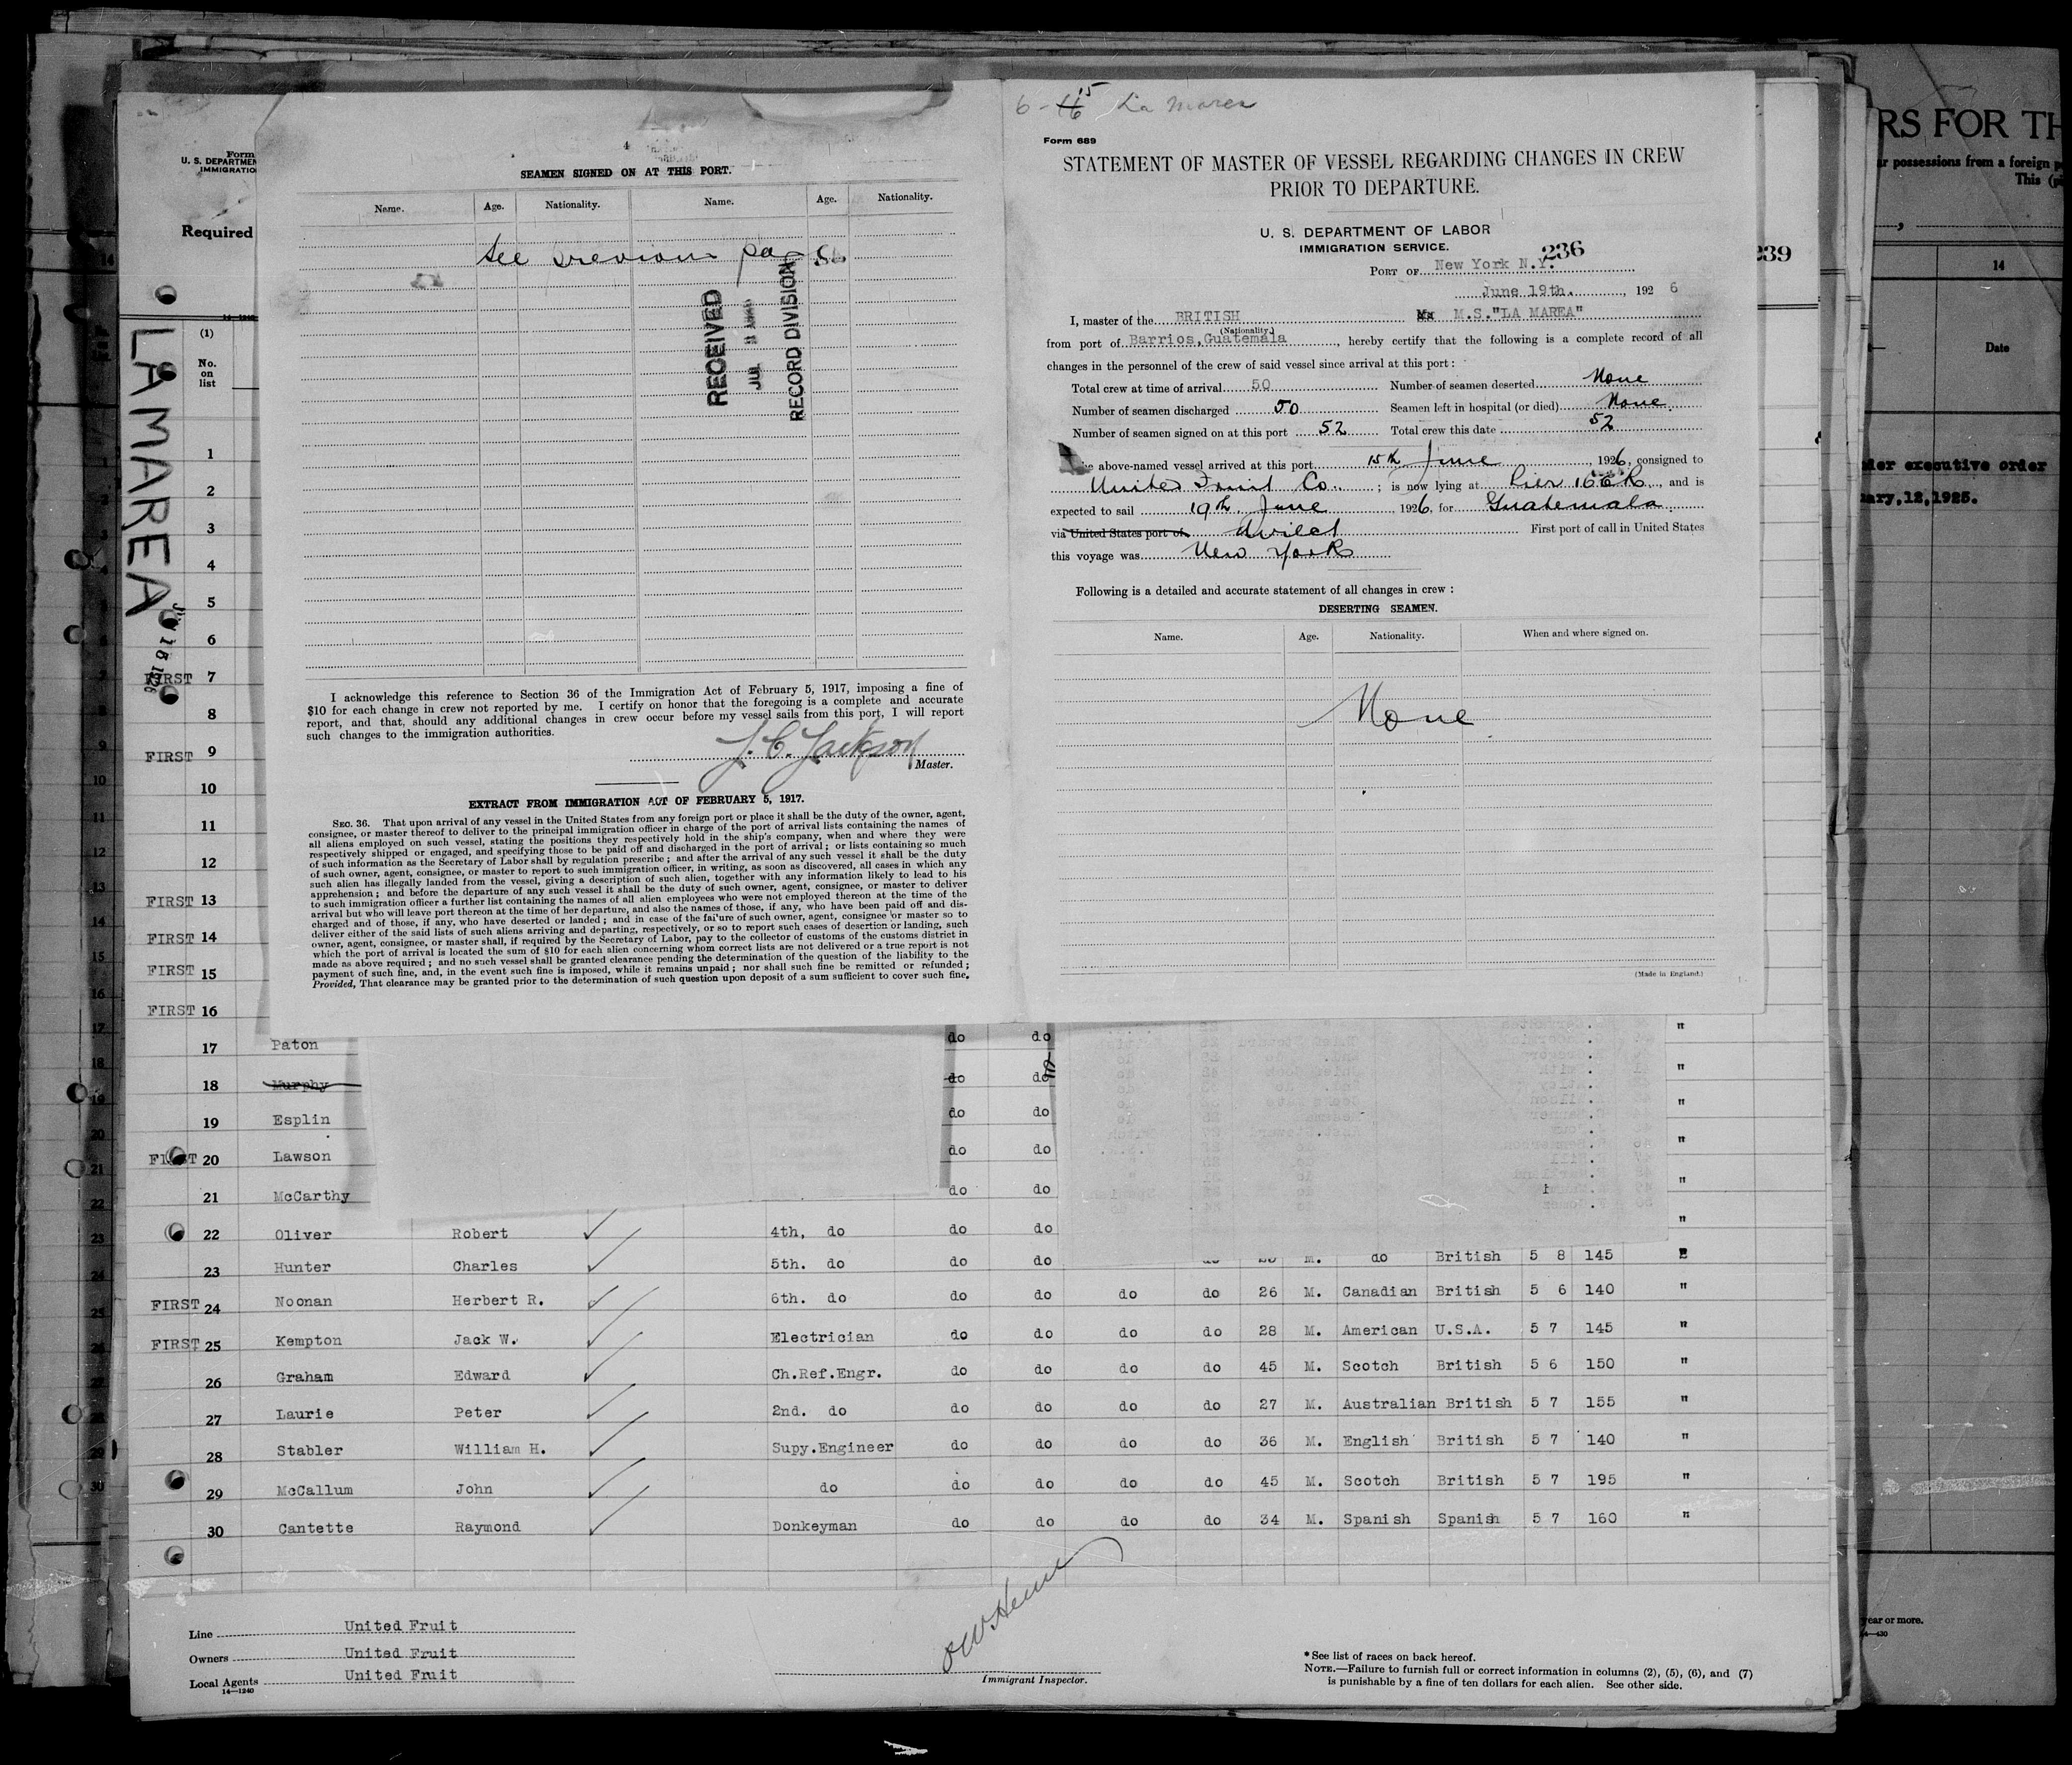 Form
U. S. DEPARTMEN
IMMIGRATIO
Required
(1)
No.
on
list
LA MAREA
4
SEAMEN SIGNED ON AT THIS PORT.
Name. Age. Nationality. Name. Age. Nationality.
See previous pag
RECEIVED
RECORD DIVISION
I acknowledge this reference to Section 36 of the Immigration Act of February 5, 1917, imposing a fine of
$10 for each change in crew not reported by me. I certify on honor that the foregoing is a complete and accurate
report, and that, should any additional changes in crew occur before my vessel sails from this port, I will report
such changes to the immigration authorities.
J. C. Jackson
Master.
EXTRACT FROM IMMIGRATION ACT OF FEBRUARY 5, 1917.
SEC. 36. That upon arrival of any vessel in the United States from any foreign port or place it shall be the duty of the owner, agent,
consignee, or master thereof to deliver to the principal immigration officer in charge of the port of arrival lists containing the names of
all aliens employed on such vessel, stating the positions they respectively hold in the ship's company, when and where they were
respectively shipped or engaged, and specifying those to be paid off and discharged in the port of arrival; or lists containing so much
of such information as the Secretary of Labor shall by regulation prescribe; and after the arrival of any such vessel it shall be the duty
of such owner, agent, consignee, or master to report to such immigration officer, in writing, as soon as discovered, all cases in which any
such alien has illegally landed from the vessel, giving a description of such alien, together with any information likely to lead to his
apprehension; and before the departure of any such vessel it shall be the duty of such owner, agent, consignee, or master to deliver
to such immigration officer a further list containing the names of all alien employees who were not employed thereon at the time of the
arrival but who will leave port thereon at the time of her departure, and also the names of those, if any, who have been paid off and dis-
charged and of those, if any, who have deserted or landed; and in case of the failure of such owner, agent, consignee or master so to
deliver either of the said lists of such aliens arriving and departing, respectively, or so to report such cases of desertion or landing, such
owner, agent, consignee, or master shall, if required by the Secretary of Labor, pay to the collector of customs of the customs district in
which the port of arrival is located the sum of $10 for each alien concerning whom correct lists are not delivered or a true report is not
made as above required; and no such vessel shall be granted clearance pending the determination of the question of the liability to the
payment of such fine, and, in the event such fine is imposed, while it remains unpaid; nor shall such fine be remitted or refunded;
Provided, That clearance may be granted prior to the determination of such question upon deposit of a sum sufficient to cover such fine.
6-15 La Marea
Form 689
STATEMENT OF MASTER OF VESSEL REGARDING CHANGES IN CREW
PRIOR TO DEPARTURE.
U. S. DEPARTMENT OF LABOR
IMMIGRATION SERVICE.
236
239
PORT OF New York N.Y.
June 19th. , 192 6
I, master of the BRITISH M.S."LA MAREA"
(Nationality)
from port of Barrios, Guatemala, hereby certify that the following is a complete record of all
changes in the personnel of the crew of said vessel since arrival at this port:
Total crew at time of arrival 50 Number of seamen deserted None
Number of seamen discharged 50 Seamen left in hospital (or died) None
Number of seamen signed on at this port 52 Total crew this date 52
above-named vessel arrived at this port 15th June 1926, consigned to
United Fruit Co. ; is now lying at Pier 16 E R, and is
expected to sail 19th June, 1926, for Guatemala
via United States port of direct First port of call in United States
this voyage was New York
Following is a detailed and accurate statement of all changes in crew:
DESERTING SEAMEN.
Name. Age. Nationality. When and where signed on.
None
(Made in England.)
RS FOR TH
r possessions from a foreign p
This (p
14
Date
der executive order
ary,12,1925.
1
2
3
4
5
6
FIRST 7
8
FIRST 9
10
11
12
FIRST 13
FIRST 14
FIRST 15
FIRST 16
17 Paton do do "
18 Murphy do do "
19 Esplin do do "
FIRST 20 Lawson do do "
21 McCarthy do do "
22 Oliver Robert 4th, do do do "
23 Hunter Charles 5th. do do do M. do British 5 8 145 "
FIRST 24 Noonan Herbert R. 6th. do do do do do 26 M. Canadian British 5 6 140 "
FIRST 25 Kempton Jack W. Electrician do do do do 28 M. American U.S.A. 5 7 145 "
26 Graham Edward Ch.Ref.Engr. do do do do 45 M. Scotch British 5 6 150 "
27 Laurie Peter 2nd. do do do do do 27 M. Australian British 5 7 155 "
28 Stabler William H. Supy.Engineer do do do do 36 M. English British 5 7 140 "
29 McCallum John do do do do do 45 M. Scotch British 5 7 195 "
30 Cantette Raymond Donkeyman do do do do 34 M. Spanish Spanish 5 7 160 "
Line United Fruit
Owners United Fruit
Local Agents United Fruit
14—1240
Immigrant Inspector.
* See list of races on back hereof.
NOTE.—Failure to furnish full or correct information in columns (2), (5), (6), and (7)
is punishable by a fine of ten dollars for each alien. See other side.
year or more.